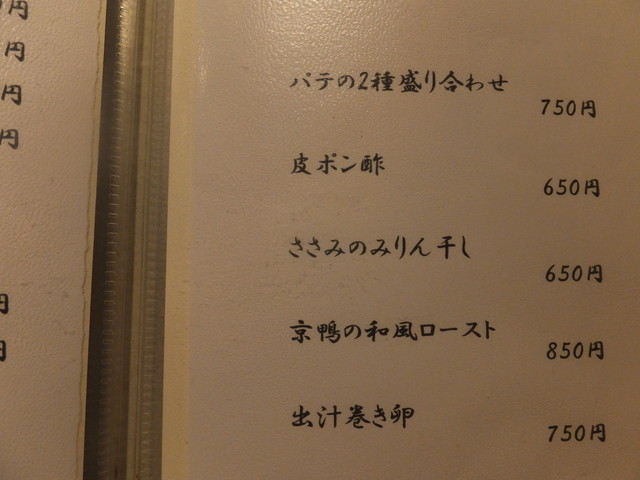 円
円
円
円
円
円
パテの2種盛り合わせ
750円
皮ポン酢
650円
ささみのみりん干し
650円
京鴨の和風ロースト
850円
出汁巻き卵
750円